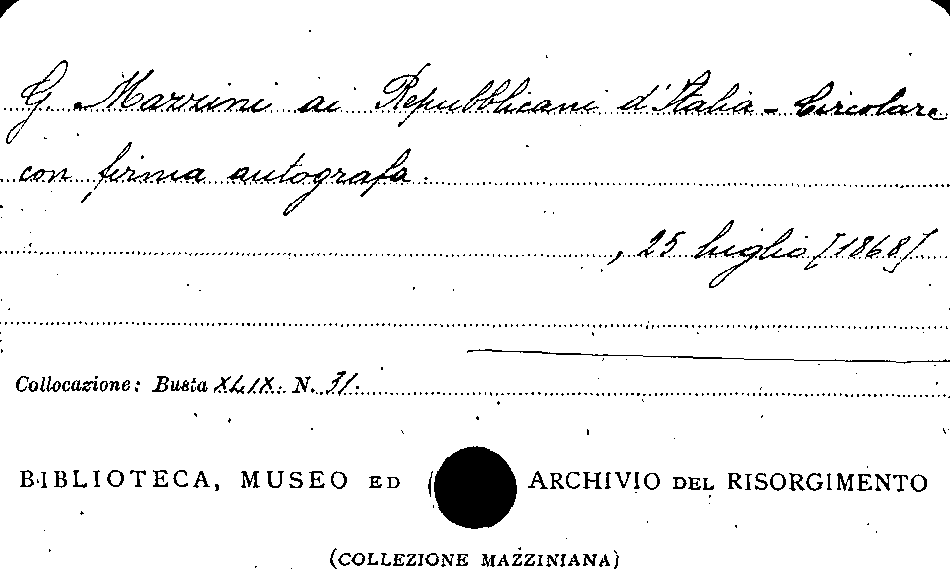 G. Mazzini ai Repubblicani d'Italia - Circolare
con firma autografa.
, 25 luglio [1868]
Collocazione: Busta XLIX. N. 31.
BIBLIOTECA, MUSEO ED ARCHIVIO DEL RISORGIMENTO
(COLLEZIONE MAZZINIANA)